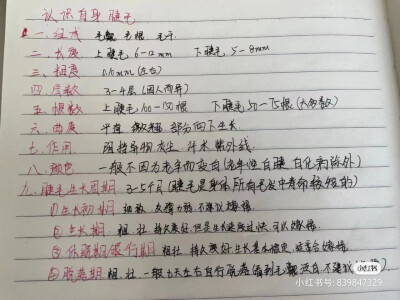 认识自身睫毛
一、组成 毛囊 毛根 毛干
二、长度 上睫毛6-12mm 下睫毛5-8mm
三、粗度 (左右)
四、层数 3-4层(因人而异)
五、根数 上睫毛100-150根 下睫毛50-75根(大多数)
六、曲度 平直 微卷翘 部分向下生长
七、作用 阻挡异物 灰尘 汗水 紫外线
八、颜色 一般不因为老年而变白(老年性白睫 白化病除外)
九、睫毛生长周期 3-5个月(睫毛是身体所有毛发中寿命较短的)
①生长初期 细软 支撑力弱 不建议嫁接
②生长期 粗壮 持久度好 但是生长速度过快 可以嫁接
③休眠期 粗壮 持久度好 生长基本稳定 适合嫁接
④脱落期 粗壮 一般 天左右自行脱落
小红书
小红书号:839847329